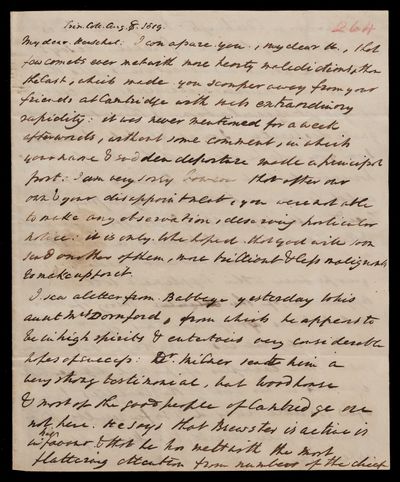 Trin. Coll. Aug. 8. 1819.
264
My dear Herschel: I can assure you, my dear H, that
few comets ever met with more hearty maledictions, than
the last, which made you scamper away from your
friends at Cambridge with such extraordinary
rapidity: it was never mentioned for a week
afterwards, without some comment, in which
your name & sudden departure made a principal
part: I am very sorry however that after our
own & your disappointment, you were not able
to make any observations, deserving particular
notice: it is only to be hoped that god will soon
send another of them, more brilliant & less malignant
to make up for it.
I saw a letter from Babbage yesterday to his
aunt Mrs Dornford, from which he appears to
be in high spirits & entertains very considerable
hopes of success: Dr. Milner sent him a
very strong testimonial, but Woodhouse
& most of the good people of Cambridge are
not here. He says that Brewster is active in
his favour & that he has met with the most
flattering attention from numbers of the chief